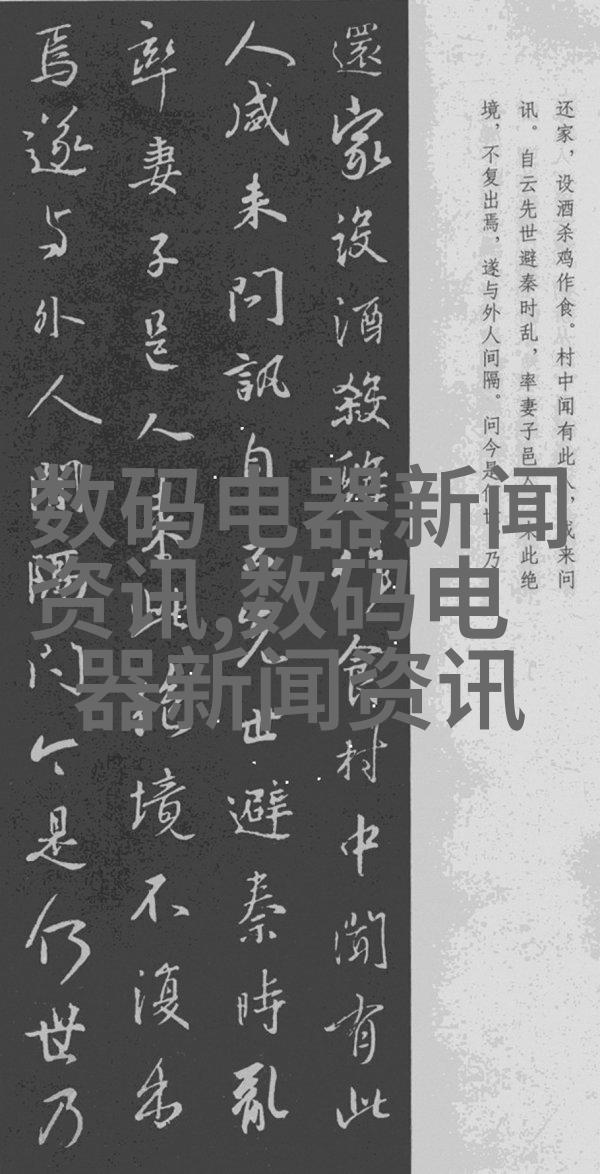 还家，设酒杀鸡作食。村中闻有此人，咸来问
讯。自云先世避秦时乱，率妻子邑人来此绝
境，不复出焉，遂与外人间隔。问今是何世，乃
還家設酒殺雞作食村中聞有此
人咸来問訊自云先世避秦時亂
率妻子邑人来此絶境不復出
焉遂与外人間隔问今是何世乃
数码电器新闻
资讯,数码电
器新闻资讯